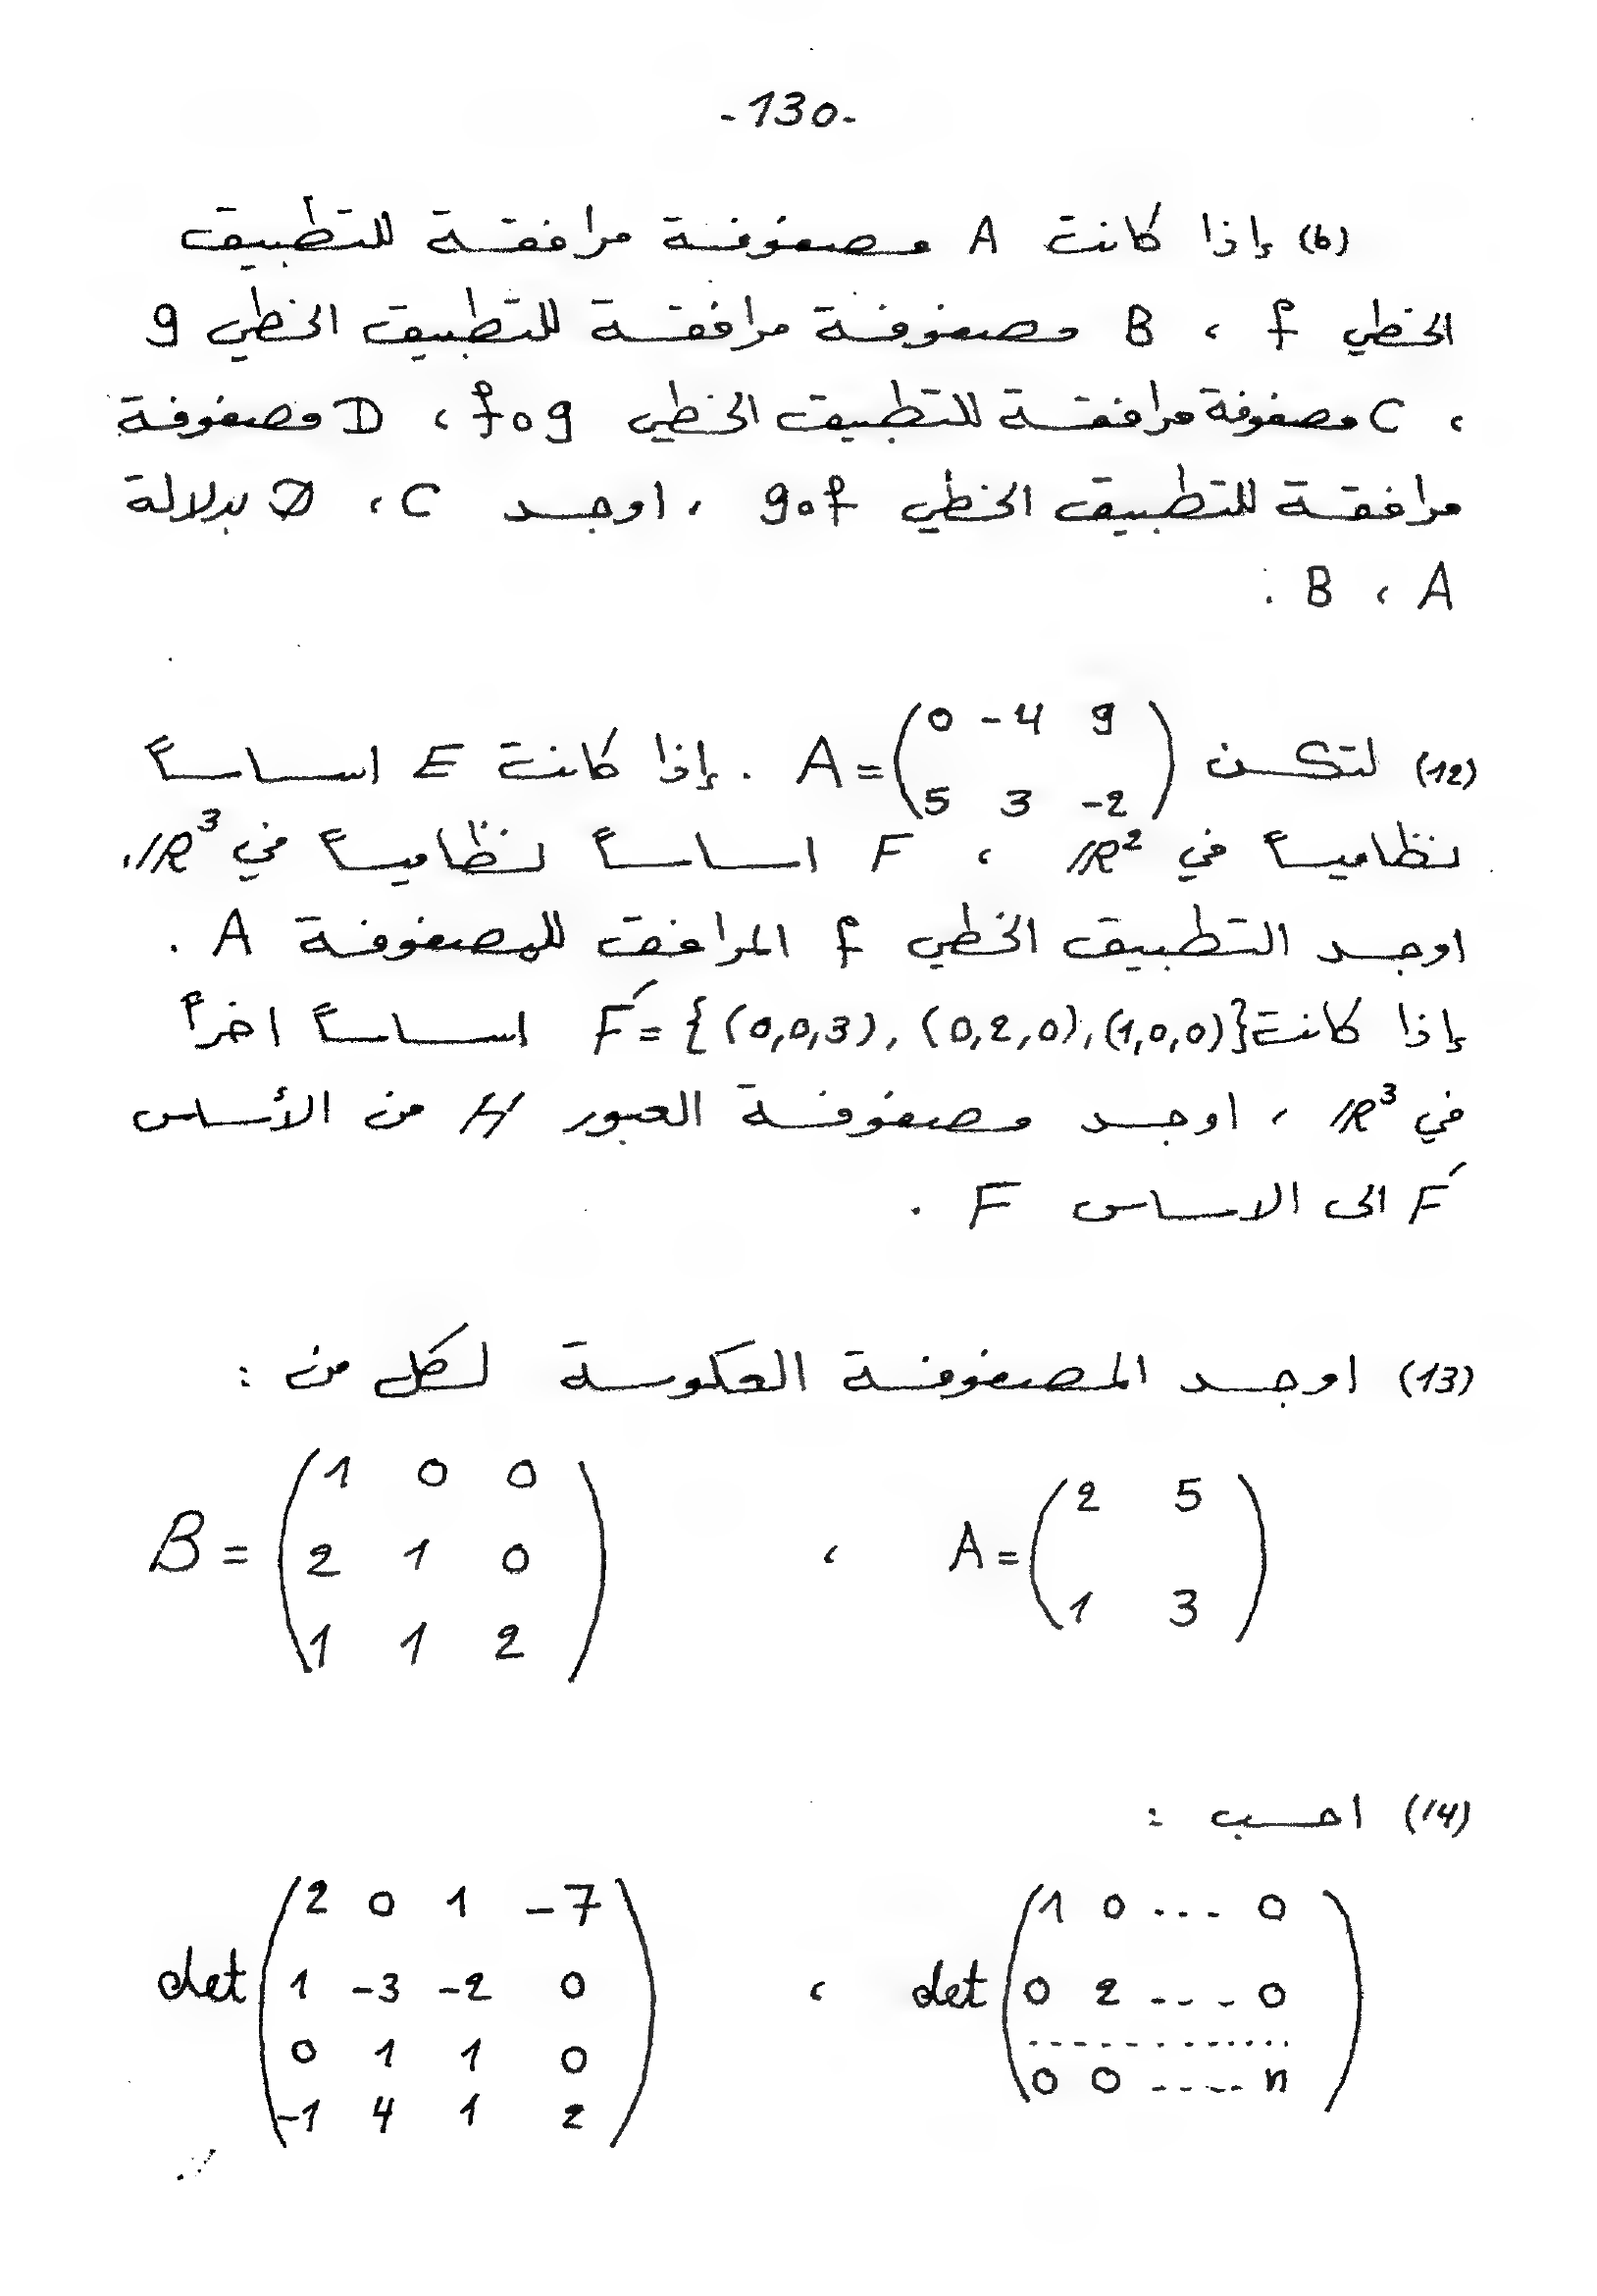 -130-
(b) إذا كانت A مصفوفة مرافقة للتطبيق
الخطي f ، B مصفوفة مرافقة للتطبيق الخطي g
، C مصفوفة مرافقة للتطبيق الخطي fog ، D مصفوفة
مرافقة للتطبيق الخطي gof ، اوجد C ، D بدلالة
A ، B .
(12) لتكن A = ( 0 -4 9 ) . إذا كانت E اساساً
( 5 3 -2 )
نظامياً في R² ، F اساساً نظامياً في R³ ،
اوجد التطبيق الخطي f المرافق للمصفوفة A .
إذا كانت F́ = { (0,0,3), (0,2,0), (1,0,0)} اساساً اخراً
في R³ ، اوجد مصفوفة العبور H من الأساس
F́ الى الاساس F .
(13) اوجد المصفوفة العكوسة لكل من :
A = ( 2 5 ) ،
( 1 3 )
B = ( 1 0 0 )
( 2 1 0 )
( 1 1 2 )
(14) احسب :
det ( 1 0 ... 0 ) ،
( 0 2 .... 0 )
..............
( 0 0 ..... n )
det ( 2 0 1 -7 )
( 1 -3 -2 0 )
( 0 1 1 0 )
( -1 4 1 2 )